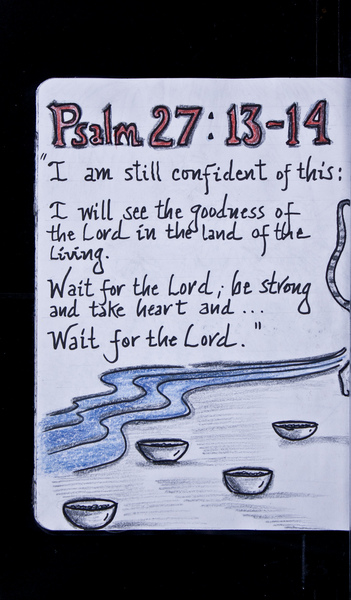 Psalm 27:13-14
"I am still confident of this:
I will see the goodness of
the Lord in the land of the
Living.
Wait for the Lord; be strong
and take heart and ...
Wait for the Lord."